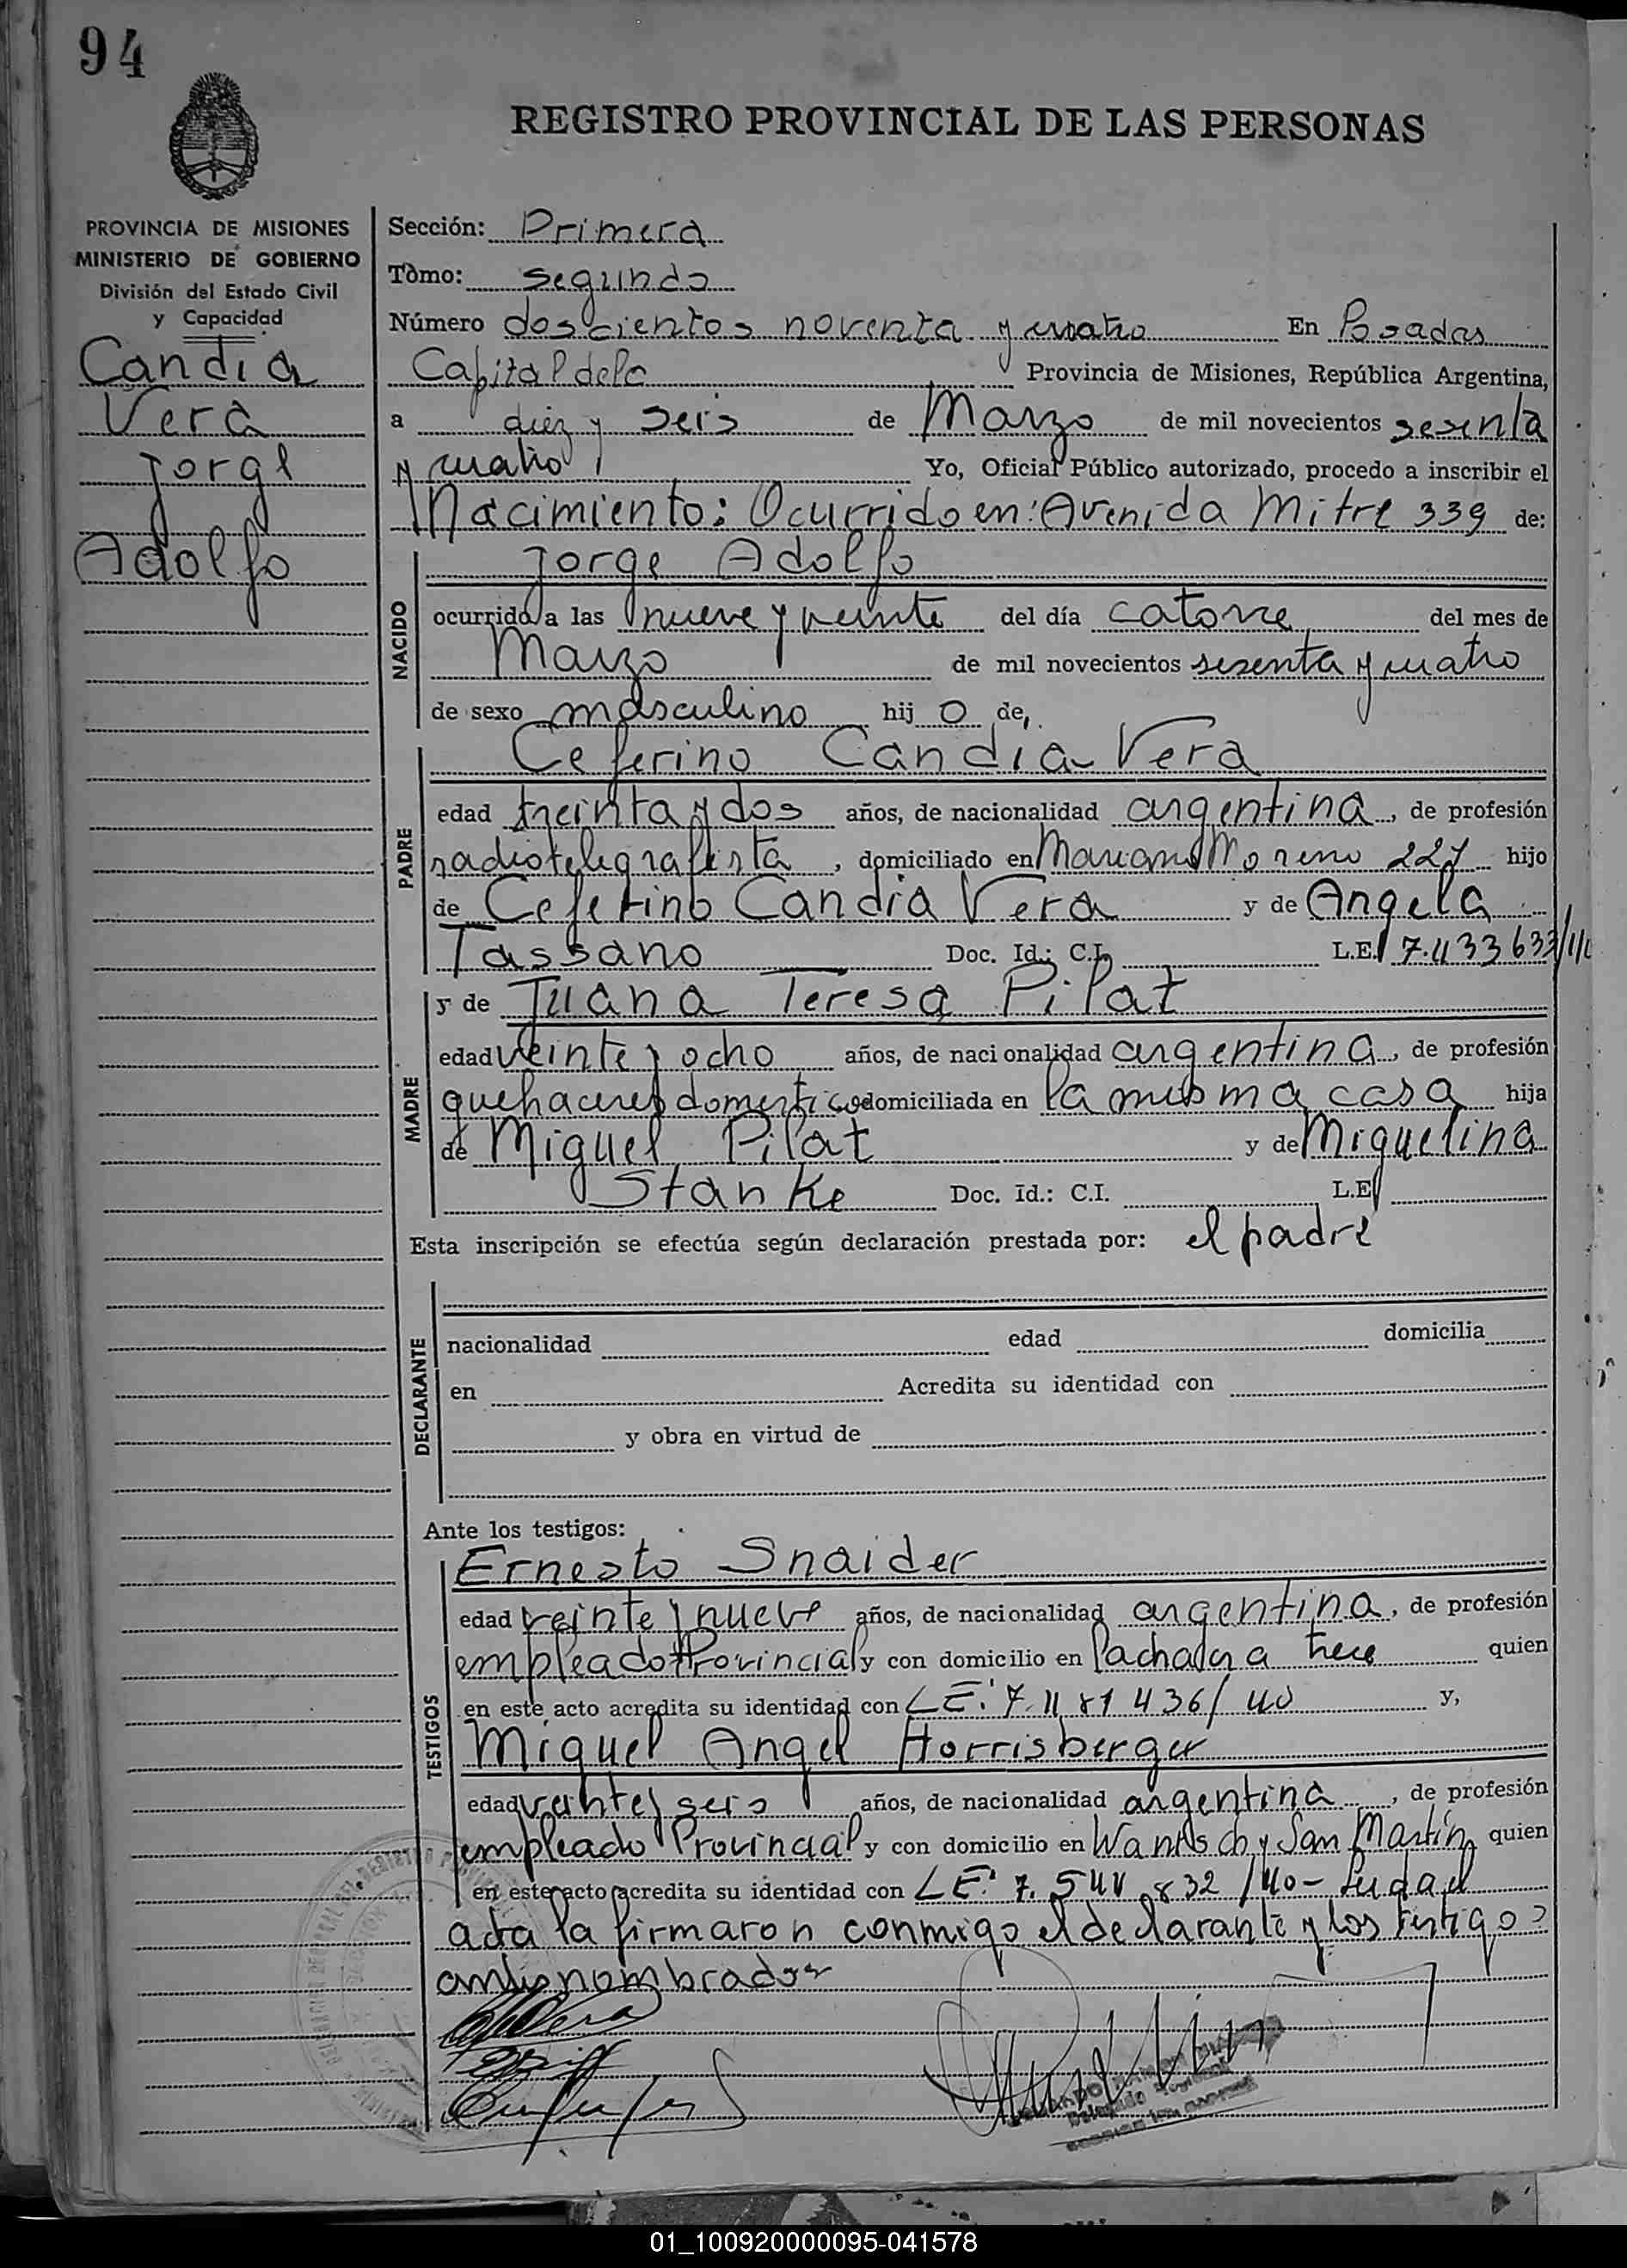 94
REGISTRO PROVINCIAL DE LAS PERSONAS
PROVINCIA DE MISIONES
MINISTERIO DE GOBIERNO
División del Estado Civil
y Capacidad
Candia
Vera
Jorge
Adolfo
Sección: Primera
Tomo: segundo
Número doscientos noventa y cuatro En Posadas
Capital de la Provincia de Misiones, República Argentina,
a diez y seis de Marzo de mil novecientos sesenta
y cuatro Yo, Oficial Público autorizado, procedo a inscribir el
Nacimiento: Ocurrido en: Avenida Mitre 339 de:
NACIDO
Jorge Adolfo
ocurrido a las nueve y veinte del día catorce del mes de
Marzo de mil novecientos sesenta y cuatro
de sexo masculino hij o de,
PADRE
Ceferino Candia Vera
edad treinta y dos años, de nacionalidad argentina, de profesión
radiotelegrafista, domiciliado en Mariano Moreno 227 hijo
de Ceferino Candia Vera y de Angela
Tassano Doc. Id.: C.I. L.E. 7.433633
MADRE
y de Juana Teresa Pilat
edad veinte y ocho años, de nacionalidad argentina, de profesión
quehaceres domesticos domiciliada en la misma casa hija
de Miguel Pilat y de Miguelina
Stanke Doc. Id.: C.I. L.E
Esta inscripción se efectúa según declaración prestada por: el padre
DECLARANTE
nacionalidad edad domicilia
en Acredita su identidad con
y obra en virtud de
Ante los testigos:
TESTIGOS
Ernesto Snaider
edad veinte y nueve años, de nacionalidad argentina, de profesión
empleado Provincial y con domicilio en trece quien
en este acto acredita su identidad con LE. y,
Miguel Angel Horrisberger
edad veinte y seis años, de nacionalidad argentina, de profesión
empleado Provincial y con domicilio en y San Martín quien
en este acto acredita su identidad con LE. 7.544.832
acta la firmaron conmigo el declarante y los testigos
antes nombrados
01_100920000095-041578